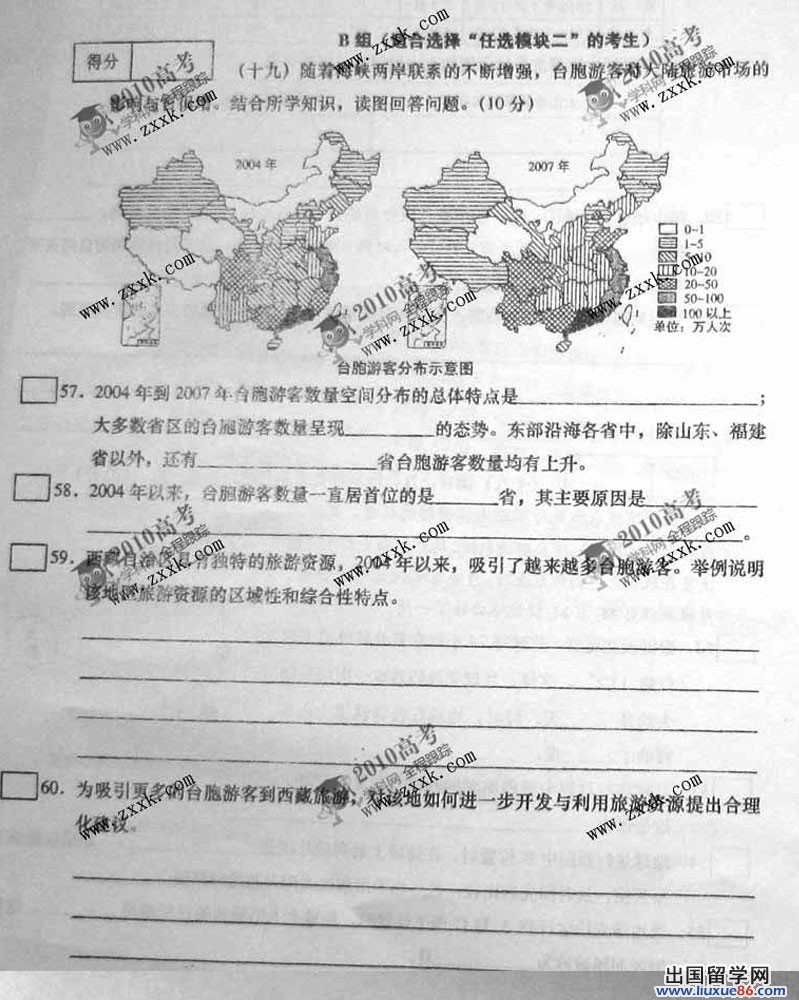 B组（适合选择“任选模块二”的考生）
得分
（十九）随着海峡两岸联系的不断增强，台胞游客对大陆旅游市场的
影响与 结合所学知识，读图回答问题。(10分)
2004年
2007年
0~1
1~5
5~10
10~20
20~50
50~100
100以上
单位：万人次
台胞游客分布示意图
57．2004年到2007年台胞游客数量空间分布的总体特点是____；
大多数省区的台胞游客数量呈现____的态势。东部沿海各省中，除山东、福建
省以外，还有____省台胞游客数量均有上升。
58．2004年以来，台胞游客数量一直居首位的是____省，其主要原因是____
____。
59．西藏自治区具有独特的旅游资源，2004年以来，吸引了越来越多台胞游客。举例说明
该地区旅游资源的区域性和综合性特点。
60．为吸引更多的台胞游客到西藏旅游，对该地如何进一步开发与利用旅游资源提出合理
化建议。
2010高考
学科网 全程跟踪
www.zxxk.com
出国留学网
www.liuxue86.com